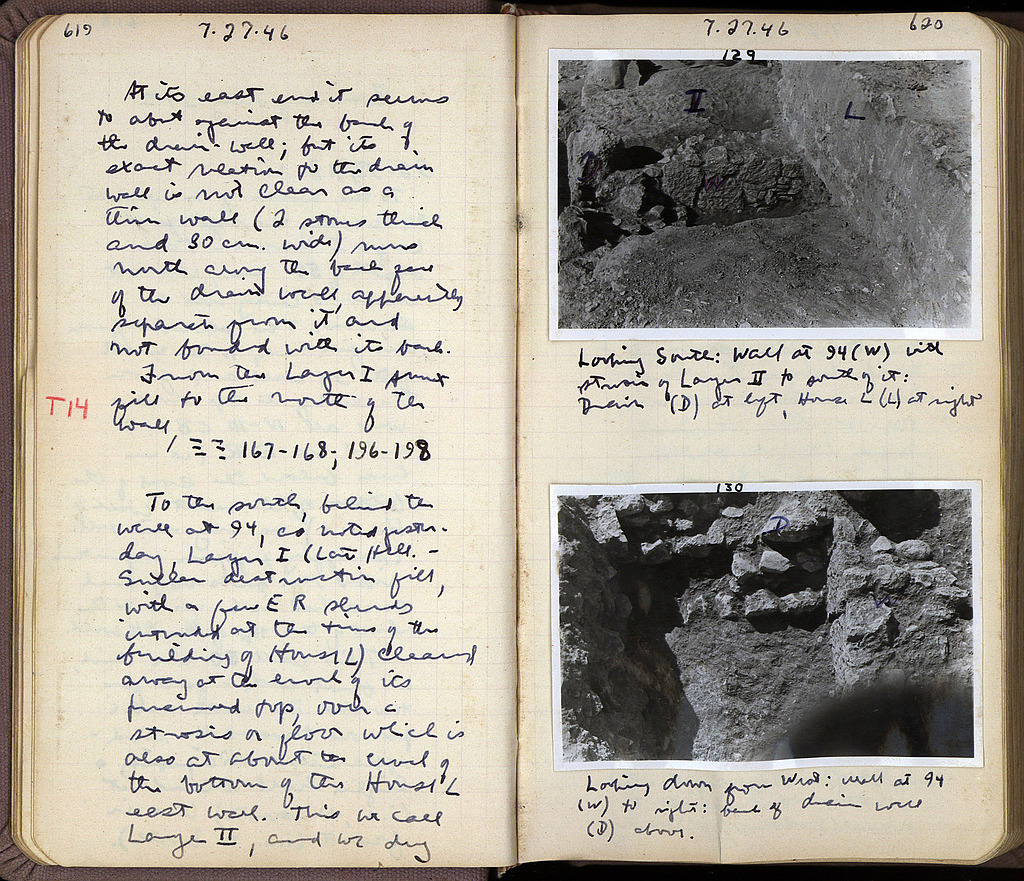 619
7.27.46
At its east end it seems
to abut against the back of
the drain-wall; but its
exact relation to the drain
wall is not clear as a
thin wall (2 stones thick
and 30 cm. wide) runs
north along the back face
of the drain wall, apparently
separate from it and
not bonded with its back.
From the Layer I
fill to the north of the
T14
wall,
ΞΞ 167-168; 196-198
To the south, behind the
wall at 94, as noted yester-
day, Layer I (Late Hell.-
Sullan destruction fill,
with a few E R sherds
intruded at the time of the
building of House L) cleared
away at the level of its
preserved top, over a
strosis or floor which is
also at about the level of
the bottom of the House L
east wall. This we call
Layer II, and we dig
7.27.46
620
129
II
L
D
W
Looking South: Wall at 94 (W) with
strosis of Layer II to south of it:
Drain (D) at left, House L (L) at right
130
D
W
Looking down from West: wall at 94
(W) to right: back of drain wall
(D) above.